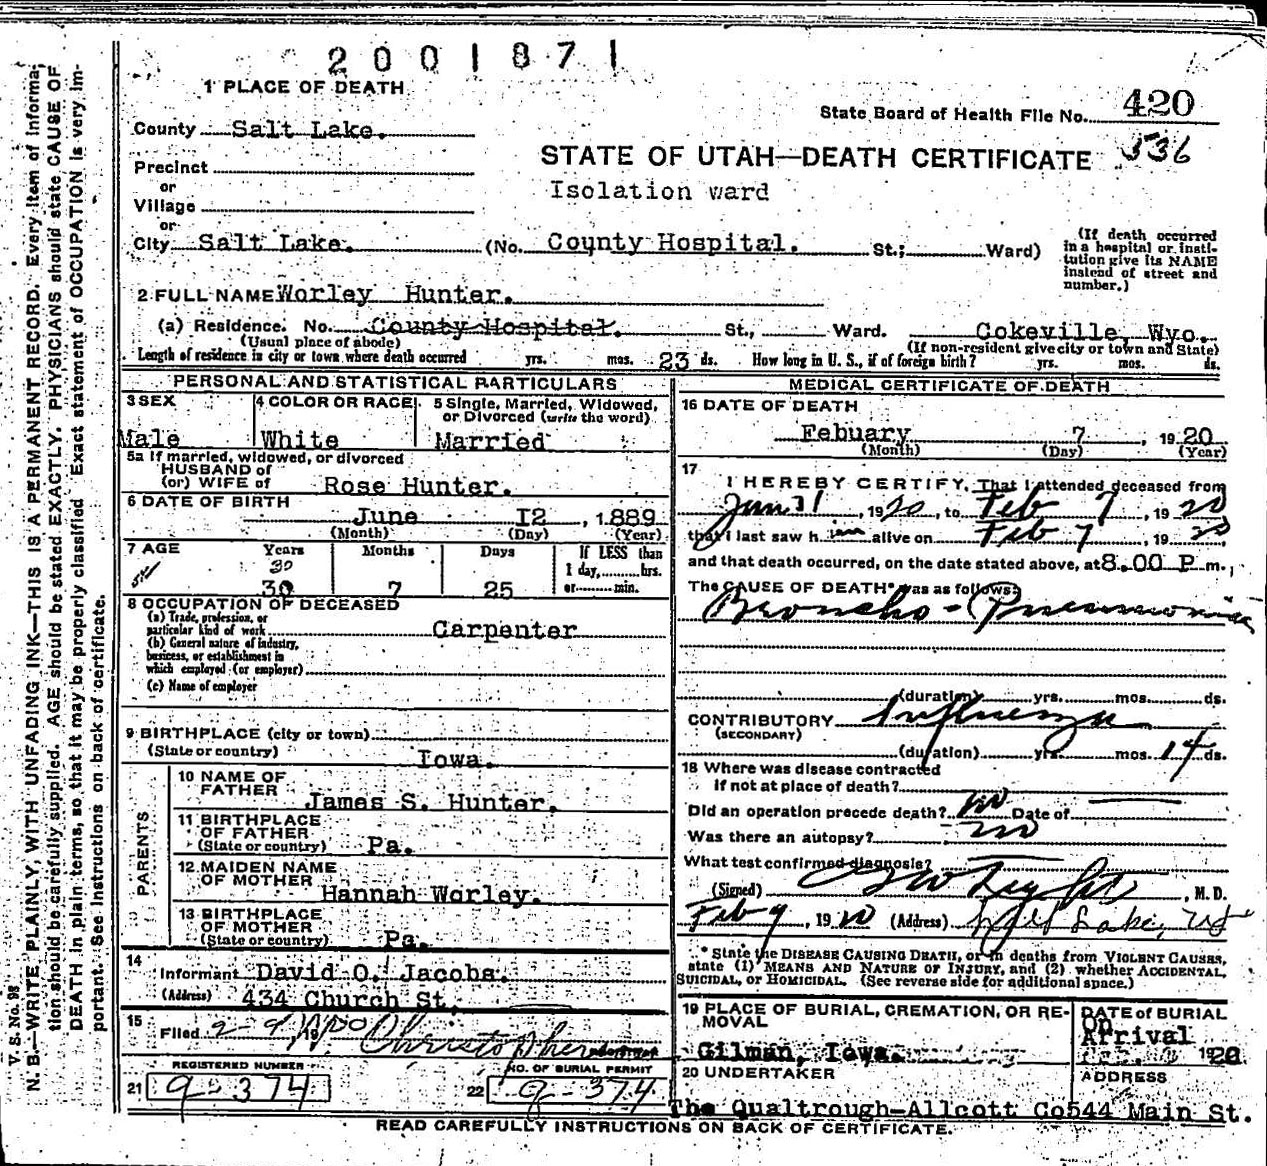 2001871
1 PLACE OF DEATH
State Board of Health File No. 420
County Salt Lake.
536
STATE OF UTAH—DEATH CERTIFICATE
Precinct
or
Isolation ward
Village
or
City Salt Lake. (No. County Hospital. St.; Ward)
(If death occurred
in a hospital or insti-
tution give its NAME
instead of street and
number.)
2 FULL NAME Worley Hunter.
(a) Residence. No. County Hospital. St., Ward. Cokeville, Wyo.
(Usual place of abode) (If non-resident give city or town and State)
Length of residence in city or town where death occurred yrs. mos. 23 ds. How long in U. S., if of foreign birth? yrs. mos. ds.
PERSONAL AND STATISTICAL PARTICULARS
3 SEX 4 COLOR OR RACE 5 Single, Married, Widowed,
or Divorced (write the word)
Male White Married
5a If married, widowed, or divorced
HUSBAND of
(or) WIFE of Rose Hunter.
6 DATE OF BIRTH
June I2, 1889
(Month) (Day) (Year)
7 AGE Years Months Days If LESS than
30 1 day, hrs.
30 7 25 or min.
8 OCCUPATION OF DECEASED
(a) Trade, profession, or
particular kind of work Carpenter
(b) General nature of industry,
business, or establishment in
which employed (or employer)
(c) Name of employer
9 BIRTHPLACE (city or town)
(State or country) Iowa.
PARENTS
10 NAME OF
FATHER James S. Hunter.
11 BIRTHPLACE
OF FATHER
(State or country) Pa.
12 MAIDEN NAME
OF MOTHER Hannah Worley.
13 BIRTHPLACE
OF MOTHER
(State or country) Pa.
14
Informant David O. Jacobs.
(Address) 434 Church St.
15
Filed 2-9 1920 Christopher
REGISTERED NUMBER NO. OF BURIAL PERMIT
21 9-374 22 9-374
MEDICAL CERTIFICATE OF DEATH
16 DATE OF DEATH
Febuary 7, 1920
(Month) (Day) (Year)
17
I HEREBY CERTIFY, That I attended deceased from
Jan 31, 1920, to Feb 7, 1920
that I last saw him alive on Feb 7, 1920,
and that death occurred, on the date stated above, at 8.00 P m.,
The CAUSE OF DEATH* was as follows:
Broncho-Pneumonia
(duration) yrs. mos. ds.
CONTRIBUTORY Influenza
(SECONDARY)
(duration) yrs. mos. 14 ds.
18 Where was disease contracted
if not at place of death?
Did an operation precede death? no Date of
Was there an autopsy? no
What test confirmed diagnosis?
(Signed), M. D.
Feb 9, 1920 (Address) Salt Lake, Ut
* State the DISEASE CAUSING DEATH, or in deaths from VIOLENT CAUSES,
state (1) MEANS AND NATURE OF INJURY, and (2) whether ACCIDENTAL,
SUICIDAL, or HOMICIDAL. (See reverse side for additional space.)
19 PLACE OF BURIAL, CREMATION, OR RE-
MOVAL
Gilman, Iowa.
DATE of BURIAL
On
Arrival
1920
20 UNDERTAKER ADDRESS
The Qualtrough-Allcott Co 544 Main St.
READ CAREFULLY INSTRUCTIONS ON BACK OF CERTIFICATE.
V. S. No. 98
N. B.—WRITE PLAINLY, WITH UNFADING INK—THIS IS A PERMANENT RECORD. Every item of informa-
tion should be carefully supplied. AGE should be stated EXACTLY. PHYSICIANS should state CAUSE OF
DEATH in plain terms, so that it may be properly classified. Exact statement of OCCUPATION is very im-
portant. See instructions on back of certificate.